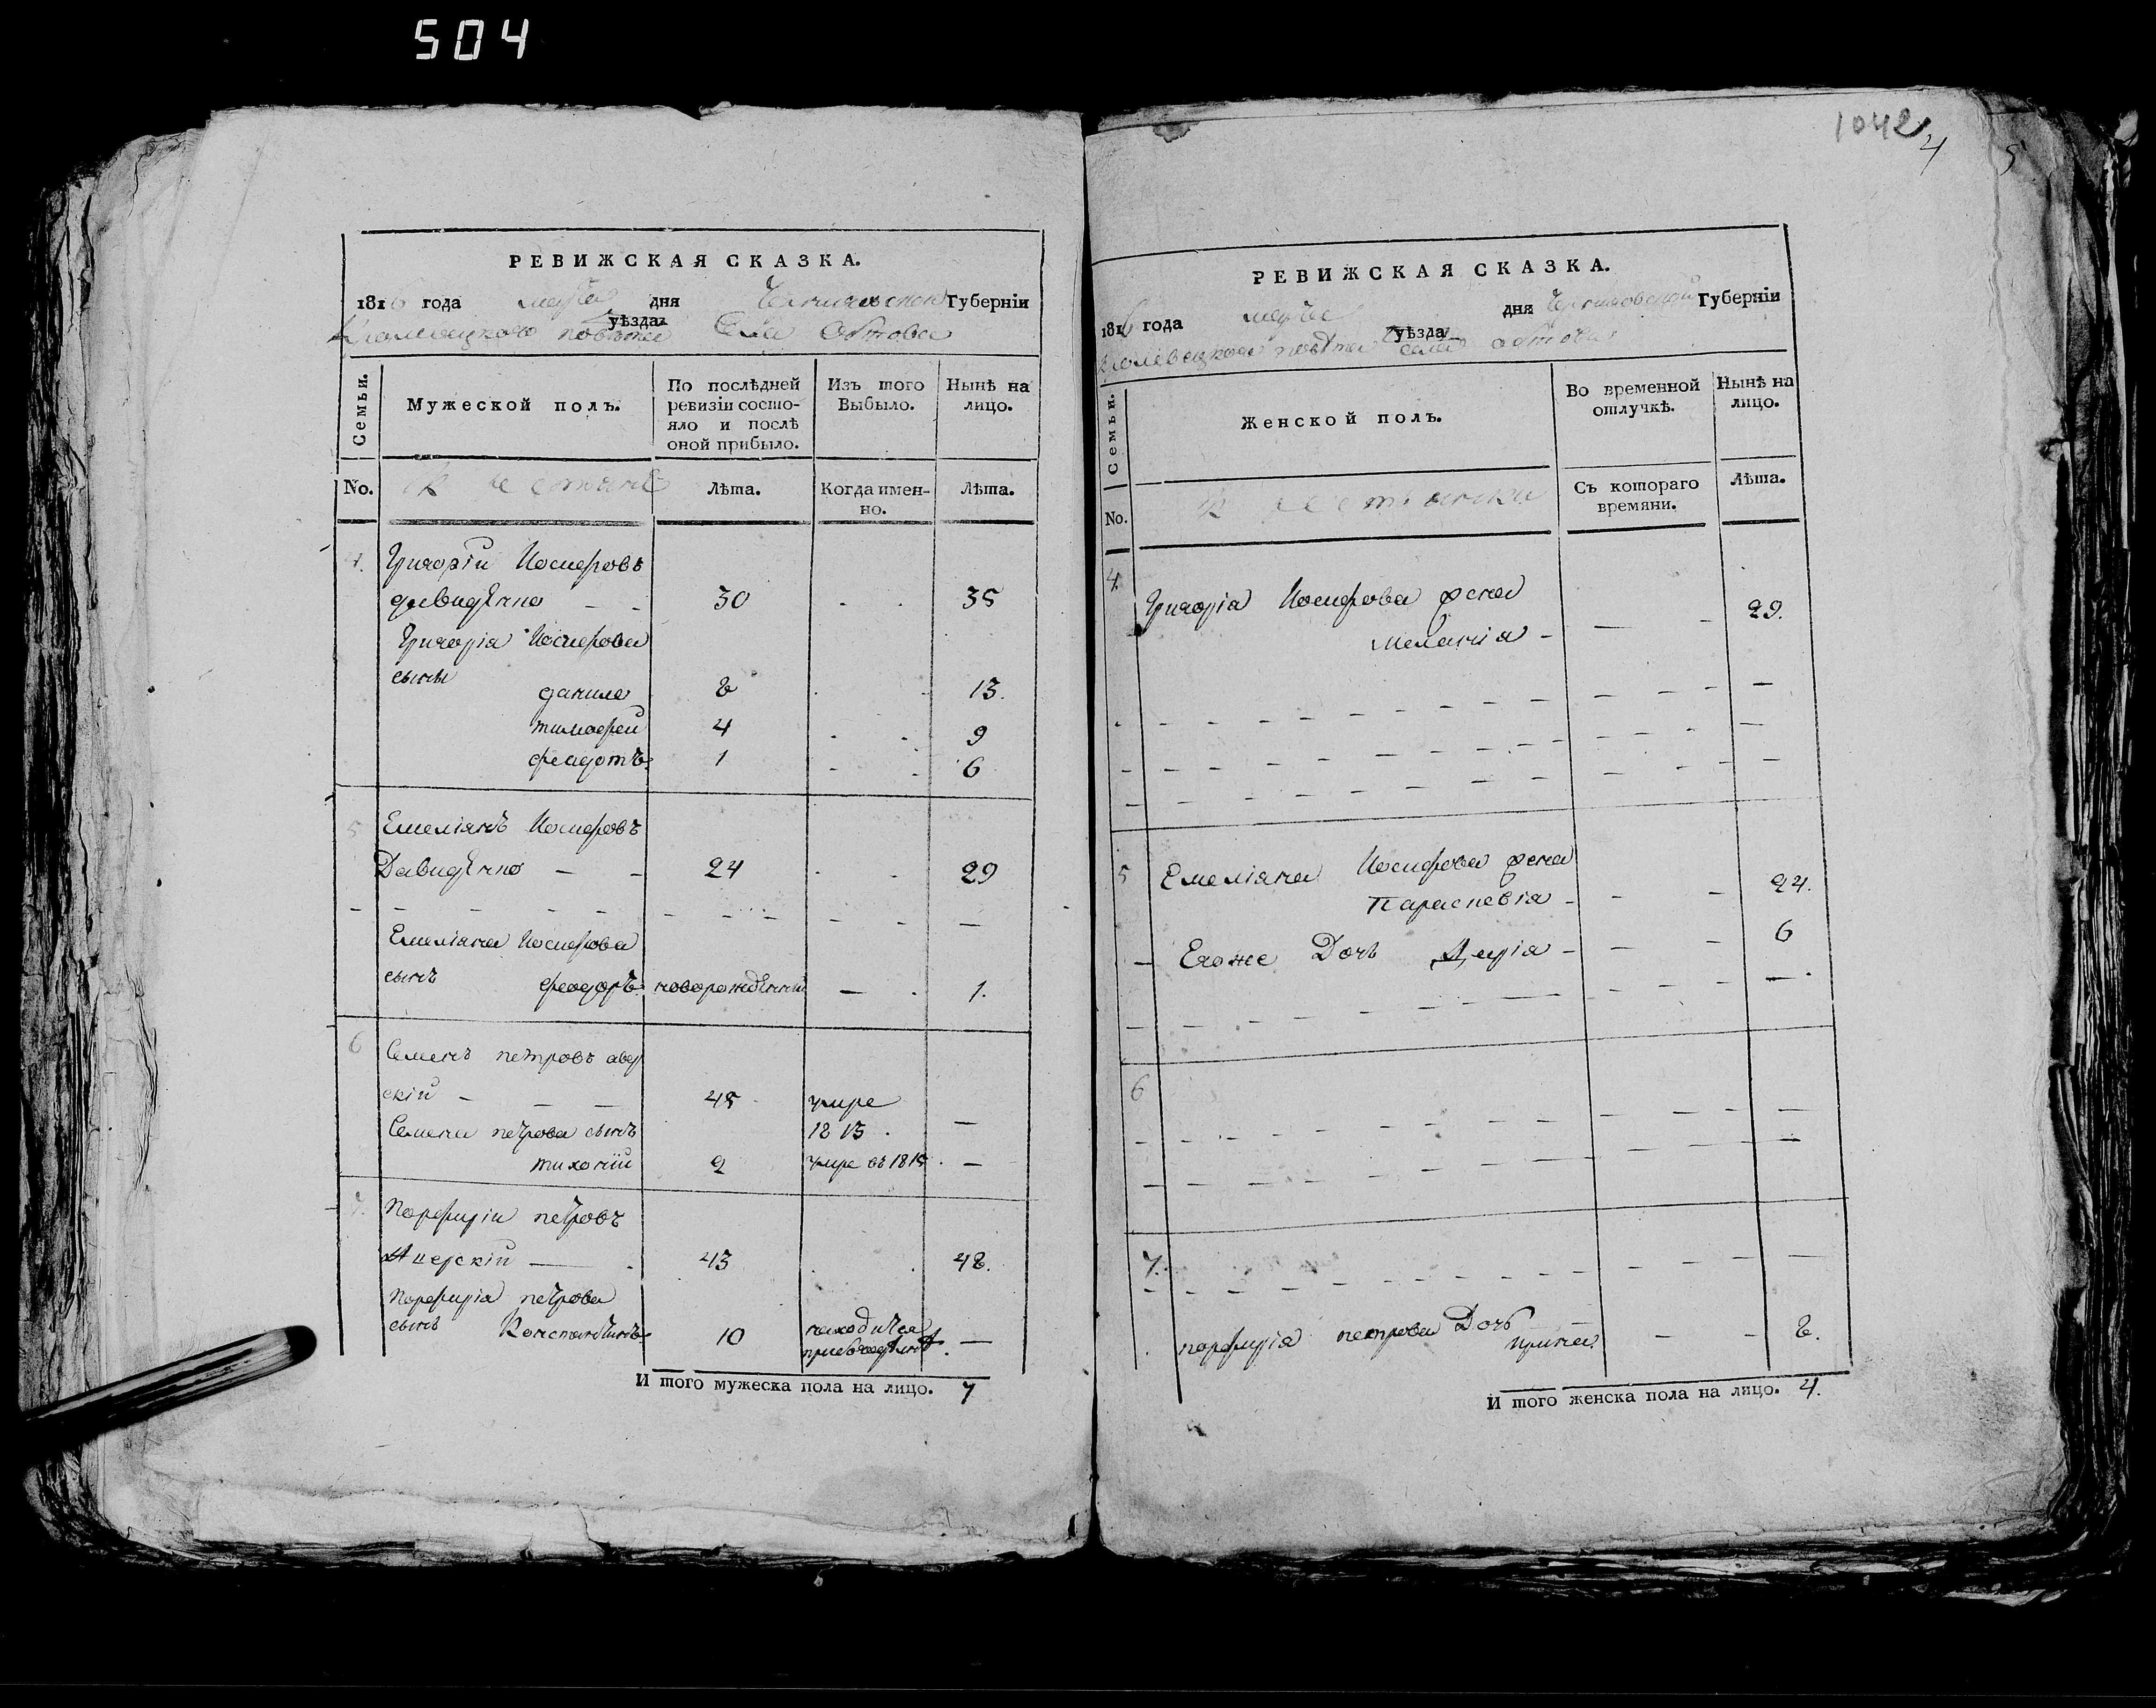 504
1042
4
5
РЕВИЖСКАЯ СКАЗКА.
1816 года марта дня Черниговской Губерніи
Кролевецкого повѣта уѣзда Села Обтова
Семьи.
Мужеской полъ.
По послѣдней ревизіи состо-
яло и послѣ
оной прибыло.
Изъ того
Выбыло.
Нынѣ на
лицо.
No.
Лѣта.
Когда имен-
но.
Лѣта.
4. Григорій Иосифовъ
давиденко 30 35
Григорія Иосифова
сыны
данило 8 13.
тимофей 4 9
феодотъ 1 6
5 Емеліянъ Иосифовъ
Давиденко 24 29
Емеліяна Иосифова
сынъ феодоръ новорожденний 1.
6 Семенъ петровъ
скій 45 умре
Семена петрова сынъ 1813.
тихоній 2 умре въ 1815
7. Порфирій петровъ
43 48.
Порфирія петрова
сынъ Константинъ 10 находится
И того мужеска пола на лицо. 7
РЕВИЖСКАЯ СКАЗКА.
1816 года марта дня Черниговской Губерніи
Кролевецкого повѣта уѣзда села обтова
Семьи.
Женской полъ.
Во временной
отлучкѣ.
Нынѣ на
лицо.
No.
Съ котораго
времяни.
Лѣта.
4. Григорія Иосифова жена
меланія 29.
5 Емеліяна Иосифова жена
Параскевія 24.
Егоже Дочь 6
6
7.
порфирія петрова Дочь
8.
И того женска пола на лицо. 4.